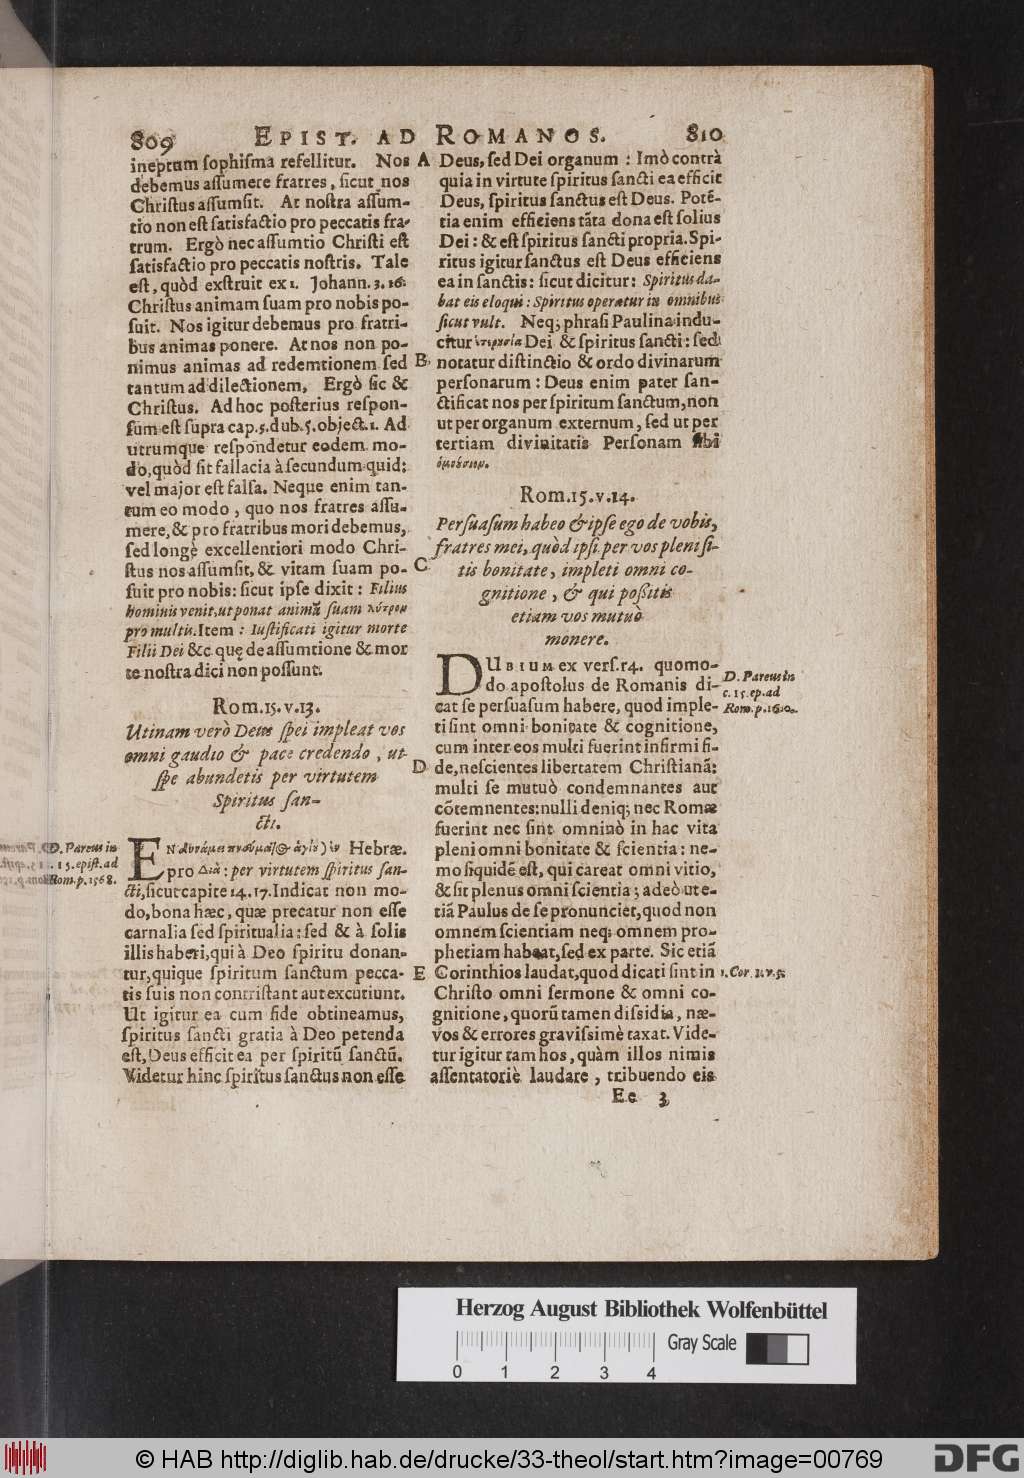 809 EPIST. AD ROMANOS. 810
ineptum sophisma refellitur. Nos
debemus assumere fratres, sicut nos
Christus assumsit. At nostra assum-
tio non est satisfactio pro peccatis fra-
trum. Ergò nec assumtio Christi est
satisfactio pro peccatis nostris. Tale
est, quòd exstruit ex 1. Johann. 3. 16:
Christus animam suam pro nobis po-
suit. Nos igitur debemus pro fratri-
bus animas ponere. At nos non po-
nimus animas ad redemtionem sed
tantum ad dilectionem, Ergò sic &
Christus. Ad hoc posterius respon-
sum est supra cap. 5. dub. 5. object. 1. Ad
utrumque respondetur eodem mo-
do, quòd sit fallacia à secundum quid:
vel major est falsa. Neque enim tan-
tum eo modo, quo nos fratres assu-
mere, & pro fratribus mori debemus,
sed longè excellentiori modo Chri-
stus nos assumsit, & vitam suam po-
suit pro nobis: sicut ipse dixit: Filius
hominis venit, ut ponat animã suam λύτρον
pro multis. Item: Iustificati igitur morte
Filii Dei &c. quę de assumtione & mor
te nostra dici non possunt.
Rom. 15. v. 13.
Utinam verò Deus spei impleat vos
omni gaudio & pace credendo, ut
spe abundetis per virtutem
Spiritus san-
cti.
D. Pareus in
c. 15. epist. ad
Rom. p. 1568.
EN δυνάμει πνεύματος ἁγίου) ἐν Hebræ.
pro Διὰ: per virtutem spiritus san-
cti, sicut capite 14. 17. Indicat non mo-
do, bona hæc, quæ precatur non esse
carnalia sed spiritualia: sed & à solis
illis haberi, qui à Deo spiritu donan-
tur, quique spiritum sanctum pecca-
tis suis non contristant aut excutiunt.
Ut igitur ea cum fide obtineamus,
spiritus sancti gratia à Deo petenda
est, Deus efficit ea per spiritũ sanctũ.
Videtur hinc spiritus sanctus non esse
A
B
C
D
E
Deus, sed Dei organum: Imò contrà
quia in virtute spiritus sancti ea efficit
Deus, spiritus sanctus est Deus. Potẽ-
tia enim efficiens tãta dona est solius
Dei: & est spiritus sancti propria. Spi-
ritus igitur sanctus est Deus efficiens
ea in sanctis: sicut dicitur: Spiritus da-
bat eis eloqui: Spiritus operatur in omnibus
sicut vult. Neq; phrasi Paulina indu-
citur Dei & spiritus sancti: sed
notatur distinctio & ordo divinarum
personarum: Deus enim pater san-
ctificat nos per spiritum sanctum, non
ut per organum externum, sed ut per
tertiam divinitatis Personam sibi
ὁμοούσιον.
Rom. 15. v. 14.
Persuasum habeo & ipse ego de vobis,
fratres mei, quòd ipsi per vos pleni si-
tis bonitate, impleti omni co-
gnitione, & qui possitis
etiam vos mutuò
monere.
DUBIUM ex vers. 14. quomo-
do apostolus de Romanis di-
cat se persuasum habere, quod imple-
ti sint omni bonitate & cognitione,
cum inter eos multi fuerint infirmi fi-
de, nescientes libertatem Christianã:
multi se mutuò condemnantes aut
cõtemnentes: nulli deniq; nec Romæ
fuerint nec sint omninò in hac vita
pleni omni bonitate & scientia: ne-
mo siquidẽ est, qui careat omni vitio,
& sit plenus omni scientia; adeò ut e-
tiã Paulus de se pronunciet, quod non
omnem scientiam neq; omnem pro-
phetiam habeat, sed ex parte. Sic etiã
Corinthios laudat, quod dicati sint in
Christo omni sermone & omni co-
gnitione, quorũ tamen dissidia, næ-
vos & errores gravissimè taxat. Vide-
tur igitur tam hos, quàm illos nimis
assentatoriè laudare, tribuendo eis
D. Pareus in
c. 15. ep. ad
Rom. p. 1610.
1. Cor. 1. v. 5.
Ee 3
Herzog August Bibliothek Wolfenbüttel
Gray Scale
0 1 2 3 4
© HAB http://diglib.hab.de/drucke/33-theol/start.htm?image=00769
DFG